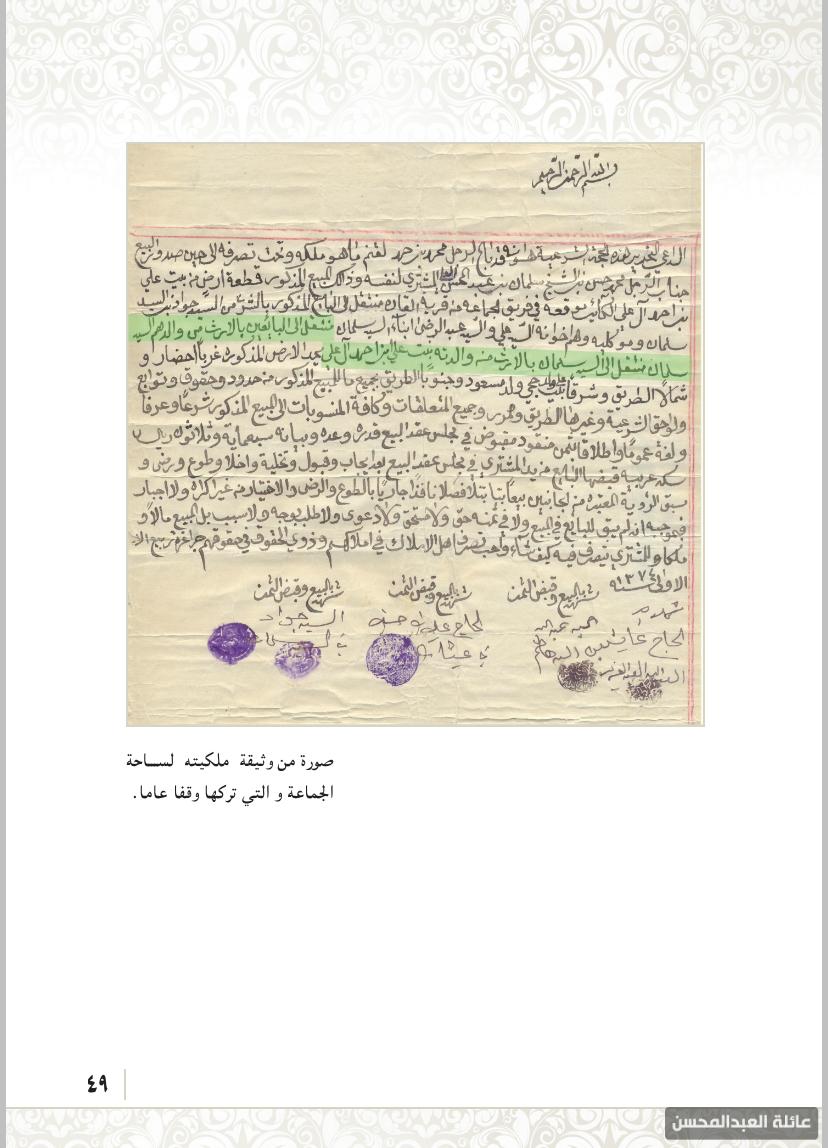 بسم الله الرحمن الرحيم
الداعي لتحرير هذه الحجة الشرعية هو انه قد باع الرجل محمد بن حمد لقتم ما هو ملكه وتحت تصرفه الى حين صدور البيع
جناب الرجل محمد حسن بن الشيخ سلمان بن عبد المحسن المشتري لنفسه وذالك المبيع المذكور قطعة ارض من بيت علي
بن احمد آل علي الكائن موقعه في فريق الجماعة من قرية القارة منتقل الى البائع المذكور بالشرى من السيد جواد بن السيد
سلمان وموكليه وهم اخوانه السيد علي والسيد عبد الرضى ابناء السيد سلمان منتقل الى البايعين بالارث من والدهم السيد
سلمان منتقل الى السيد سلمان بالارث من والدته بيت علي بن احمد آل علي يحد الارض المذكورة غربا احضار و
شمالا الطريق وشرقا بيت حجي ولد مسعود وجنوبا الطريق بجميع ما للمبيع المذكور من حدود وحقوق وتوابع
ولواحق الشرعية وغيرها الطريق وممرر وجميع المتعلقات وكافة المنسوبات الى المبيع المذكور شرعا وعرفا
ولغة عموما واطلاقا بثمن منقود مقبوض في مجلس عقد البيع قدره وعده وبيانه سبعماية وثلاثون ريال
سكه عربيه قبضها البايع من يد المشتري في مجلس عقد البيع بعد ايجاب وقبول وتخلية واخلا وطوع ورضى و
سبق الروية المعتبره من الجانبين بيعا بتا بتلا فصلا نافذا جاريا بالطوع والرضى والاختيار من غير اكراه ولا اجبار
فبموجبه انه لم يبق للبايع في المبيع ولا في ثمنه حق ولا مستحق ولا دعوى ولا طلب بوجه ولا سبب بل المبيع مالا و
ملكا للمشتري يتصرف فيه كيف شاء واحب تصرف اهل الاملاك في املاكهم وذوي الحقوق في حقوقهم جرا غرة ربيع الا
الاولى سنة ١٣٧٤
شهد بالبيع وقبض الثمن شهد بالبيع وقبض الثمن شهد بالبيع وقبض الثمن
الحاج علي السيد جواد
صورة من وثيقة ملكيته لساحة
الجماعة و التي تركها وقفا عاما.
٤٩
عائلة العبدالمحسن